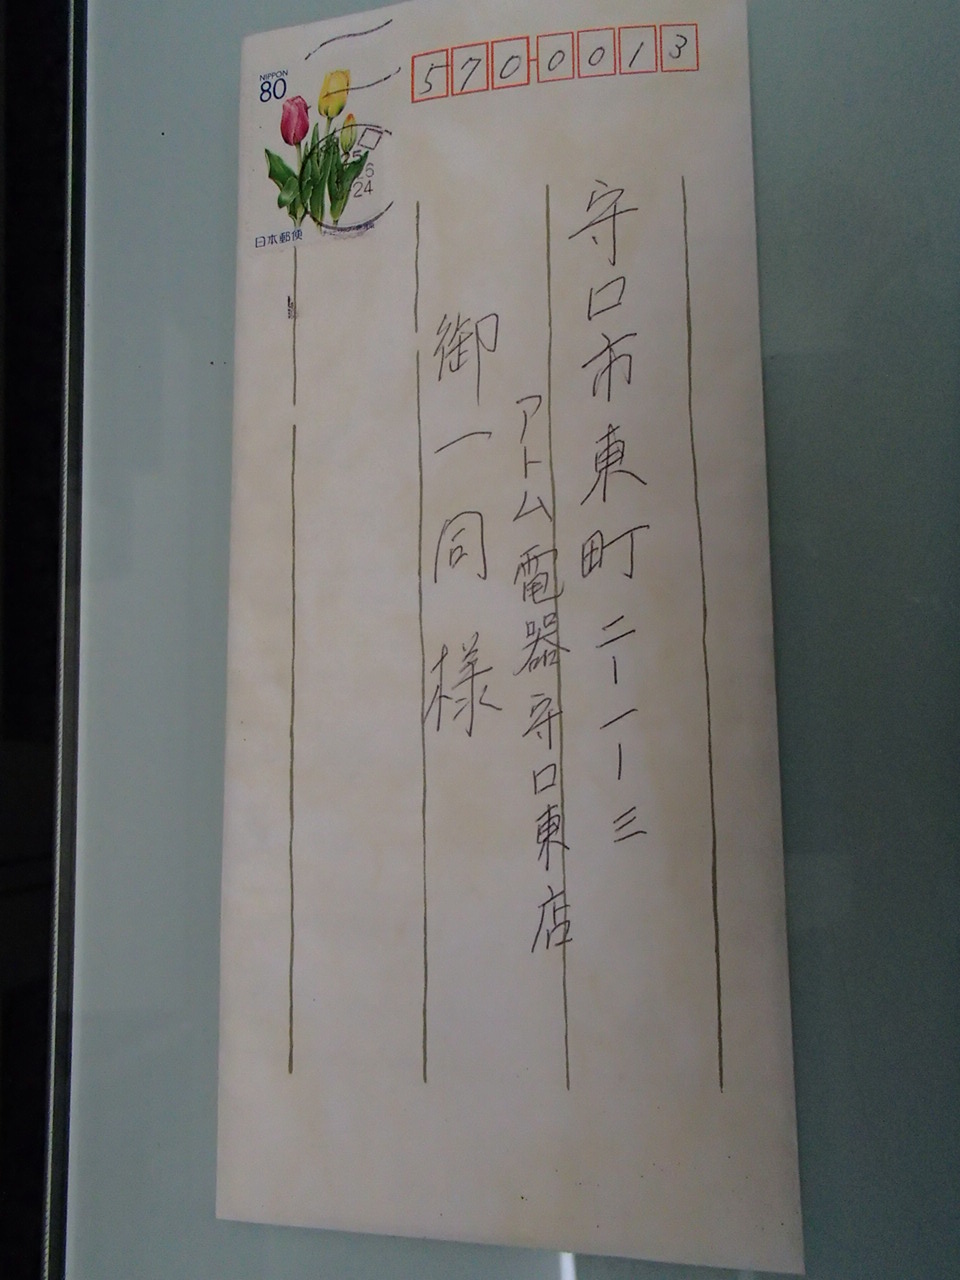 NIPPON
80
日本郵便
25
6
24
570-0013
守口市東町二ー一ー三
アトム電器守口東店
御一同様